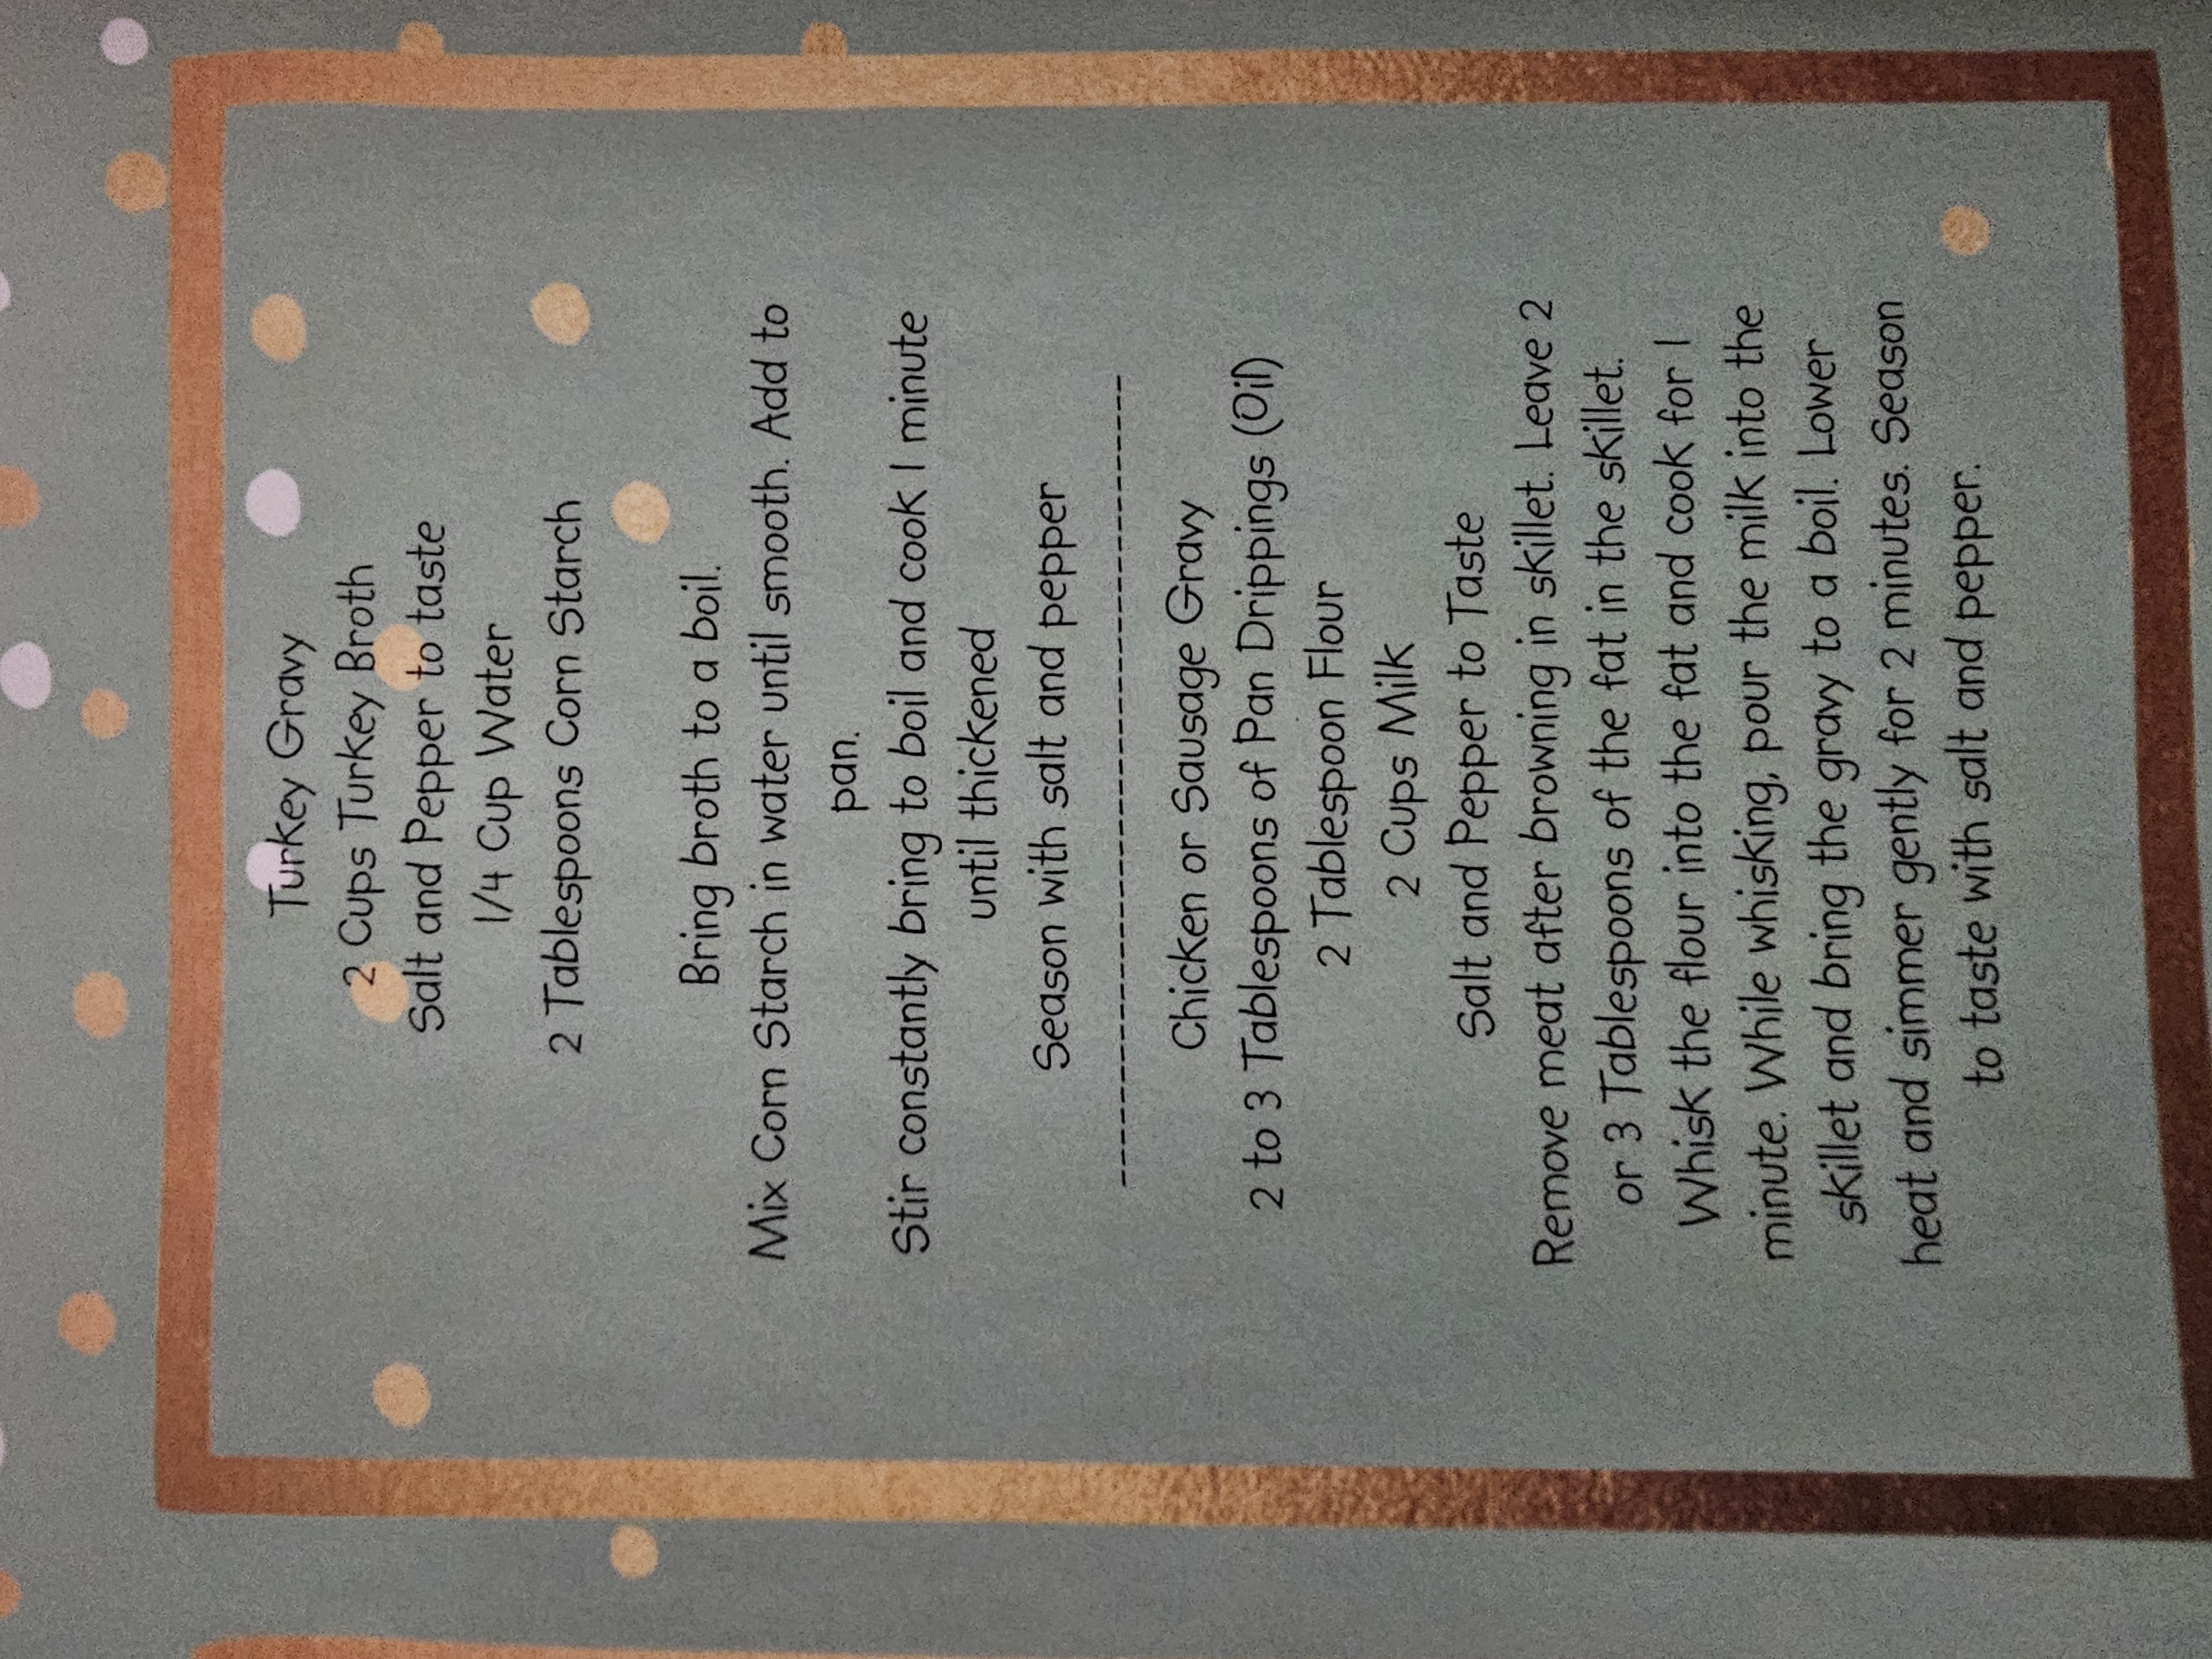 Turkey Gravy
2 Cups Turkey Broth
Salt and Pepper to taste
1/4 Cup Water
2 Tablespoons Corn Starch
Bring broth to a boil.
Mix Corn Starch in water until smooth. Add to
pan.
Stir constantly bring to boil and cook 1 minute
until thickened
Season with salt and pepper
------------------------------------------------
Chicken or Sausage Gravy
2 to 3 Tablespoons of Pan Drippings (Oil)
2 Tablespoon Flour
2 Cups Milk
Salt and Pepper to Taste
Remove meat after browning in skillet. Leave 2
or 3 Tablespoons of the fat in the skillet.
Whisk the flour into the fat and cook for 1
minute. While whisking, pour the milk into the
skillet and bring the gravy to a boil. Lower
heat and simmer gently for 2 minutes. Season
to taste with salt and pepper.